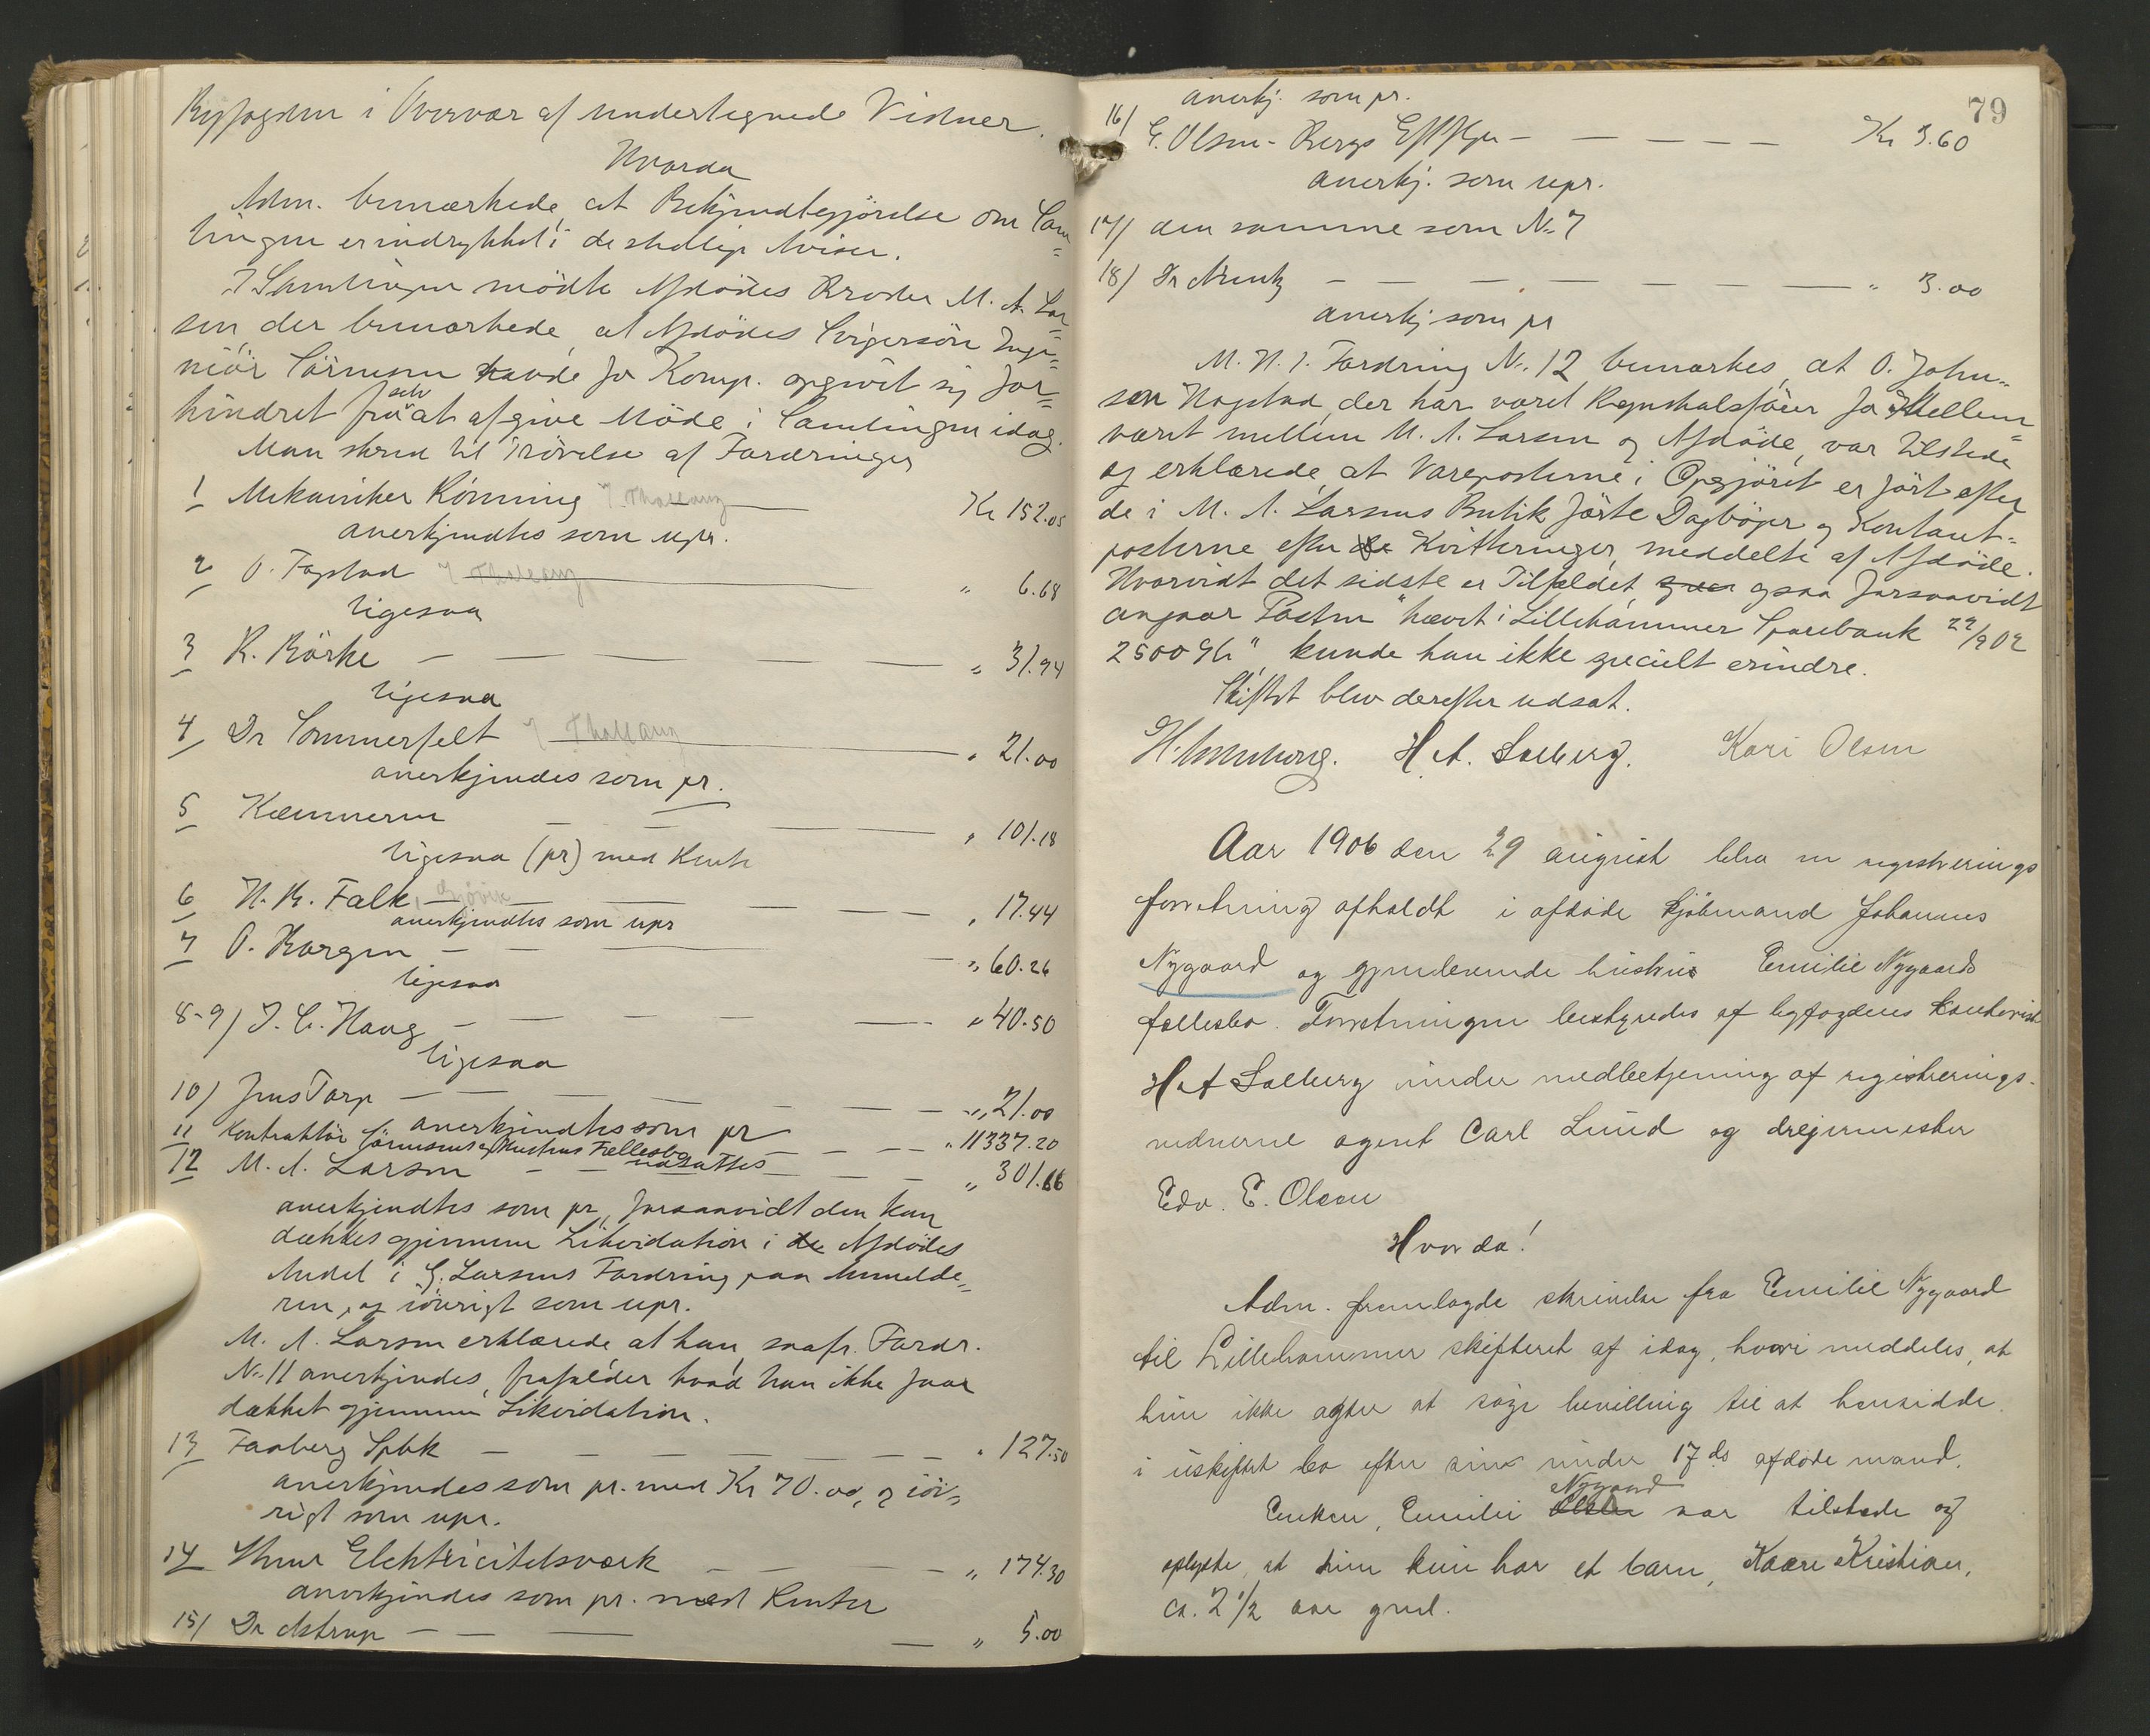 Byfogden i Overvær af undertegnede Vidner.
Hvorda
Adm. bemærkede, at Bekjendtgjörelse om Sam-
lingen er indrykket i de stedlige Aviser.
I Samlingen mödte Afdödes Broder M. A. Lar-
sen, der bemærkede, at Afdödes Svigersön Inge-
niör Sörensen havde for Komp. opgivet sig for-
hindret fra selv at afgive Möde i Samlingen idag.
Man skred til Prövelse af Fordringer
1 Mekaniker Rönning Kr 152.05
anerkjendtes som upr.
2 O. Fogstad " 6.68
ligesaa
3 R. Börke — — — — " 31.94
ligesaa
4 Dr Sommerfelt " 21.00
anerkjendes som pr.
5 Kæmneren — — — " 101.18
ligesaa (pr) med Rente
6 H. B. Falk, Gjövik — — — " 17.44
anerkjendtes som upr
7 O. Horgen — — — " 60.26
ligesaa
8-9) J. C. Haug — — — — " 40.50
ligesaa
10) Jens Torp — — — — " 21.00
anerkjendtes som pr
11 Kontraktör Sörensens og Hustrus Fællesbo — — " 11337.20
udsattes
12 M. A. Larsen — — — " 301.66
anerkjendtes som pr, forsaavidt den kan
dækkes gjennem Likvidation i de Afdödes
Andel i G. Larsens Fordring paa Anmelde-
ren, og iövrigt som upr.
M. A. Larsen erklærede at han, saafr. Fordr.
No 11 anerkjendes, frafalder hvad han ikke faar
dækket gjennem Likvidation.
13 Faaberg Spbk — — — — " 127.50
anerkjendes som pr. med Kr 70.00, og iöv-
rigt som upr.
14 Elektricitetsværk — — — " 174.30
anerkjendes som pr. med Renter
15) Dr Astrup — — — " 5.00
anerkj. som pr.
79
16) E. Olsen-Bergs Eftflgr — — — — Kr 3.60
anerkj. som upr.
17) den samme som No 7
18) Dr — — — — — " 3.00
anerkj som pr
M. H. t. Fordring No. 12 bemærkes, at O. John-
sen Hagstad, der har været Regnskabsförer for Mellem-
været mellem M. A. Larsen og Afdöde, var tilstede
og erklærede, at Vareposterne i Opgjöret er fört efter
de i M. A. Larsens Butik förte Dagböger og Kontant-
posterne efter de Kvitteringer, meddelte af Afdöde.
Hvorvidt det sidste er Tilfældet ogsaa forsaavidt
angaar Posten "hævet i Lillehammer Sparebank 22/9 02
2500 Kr", kunde han ikke specielt erindre.
Skiftet blev derefter udsat.
H. A. Solberg. Kari Olsen
Aar 1906 den 29 august blev en registrerings
forretning afholdt i afdöde kjöbmand Johannes
Nygaard og gjenlevende hustru Emilie Nygaards
fællesbo. Forretningen bestyredes af byfogdens kontorist
H A Solberg under medbetjening af registrerings-
vidnerne agent Carl Lund og dreiermester
Edv. E. Olsen
Hvor da!
Adm. fremlagde skrivelse fra Emilie Nygaard
til Lillehammer skifteret af idag, hvori meddeles, at
hun ikke agter at söge bevilling til at hensidde
i uskiftet bo efter sin under 17 ds afdöde mand.
Enken, Emilie Olsen Nygaard var tilstede og
oplyste, at hun kun har et barn, Kaare Kristian,
ca. 2 1/2 aar gml.